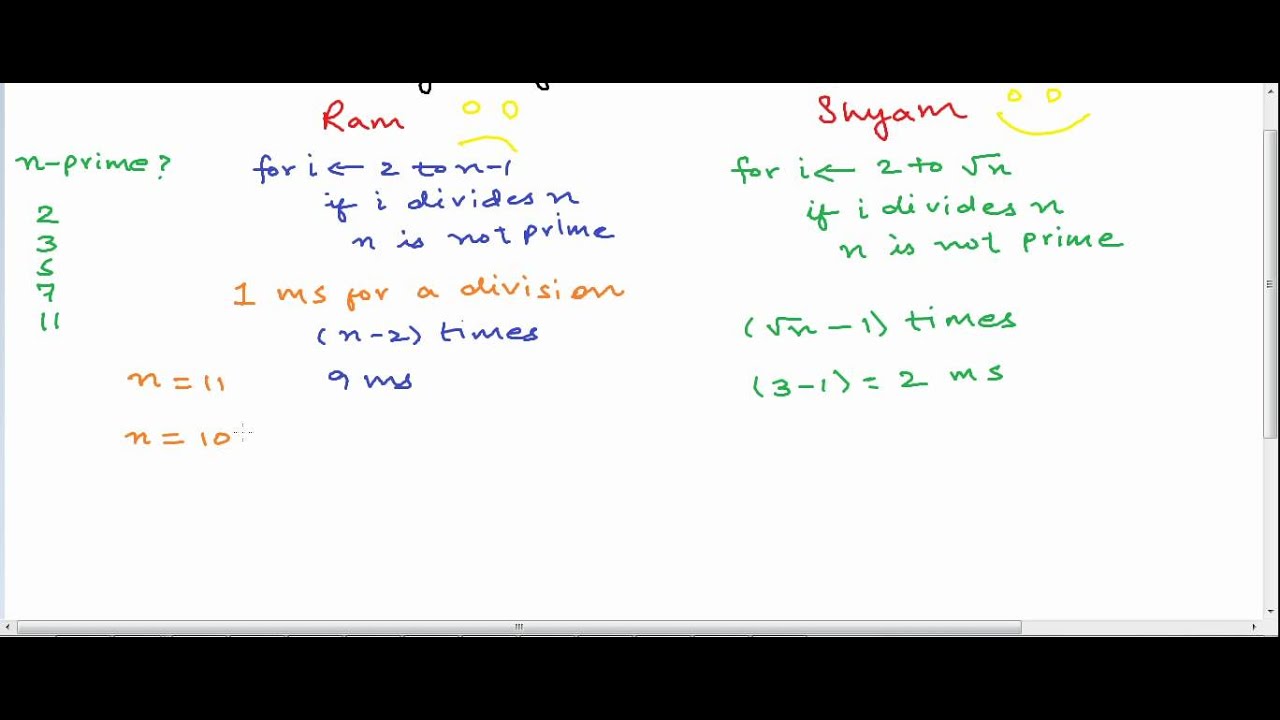 Ram
Shyam
n-prime?
for i ← 2 to n-1
for i ← 2 to √n
if i divides n
if i divides n
n is not prime
n is not prime
2
3
5
7
11
1 ms for a division
(n-2) times
(√n - 1) times
n = 11
9 ms
(3-1) = 2 ms
n = 10